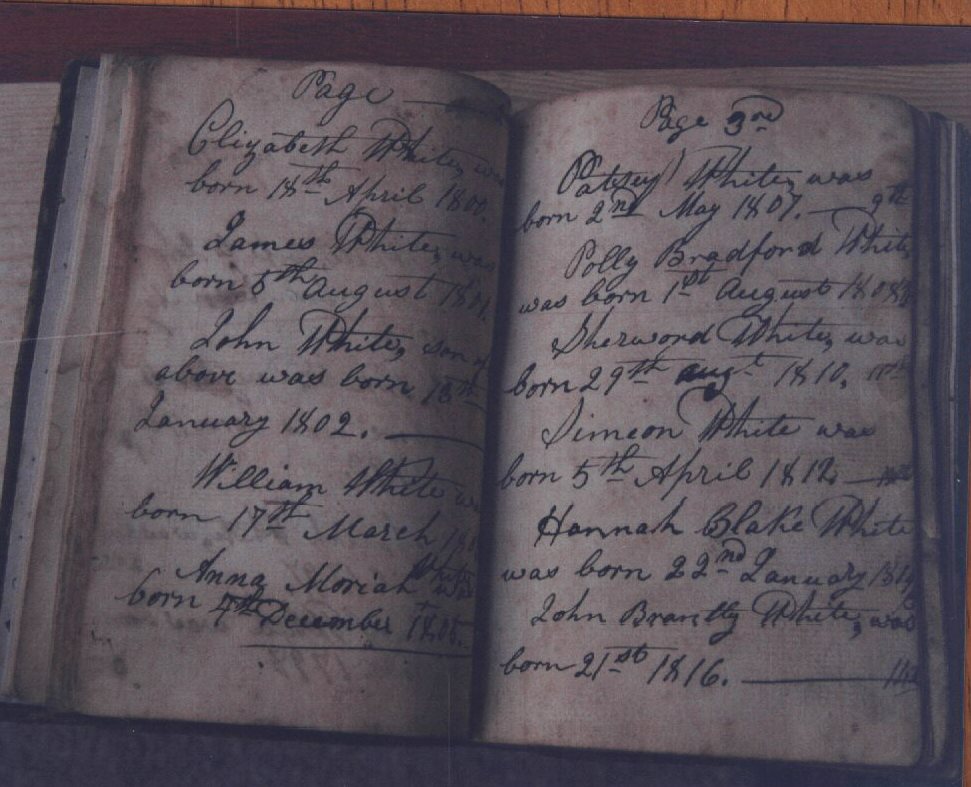 Page
Elizabeth White, was
born 18th April 1800.
James White, was
born 5th August 1801
John White, son of
above was born 18th
January 1802.
William White
born 17th March
Anna Moriah White was
born 4th December 1805.
Page 3rd
Patsey White, was
born 2nd May 1807. 9th
Polly Bradford White
was born 1st August 1808
Sherword White, was
born 29th augt 1810.
Simeon White was
born 5th April 1812.
Hannah Blake White
was born 22nd January
John Brantly White, was
born 21st 1816.